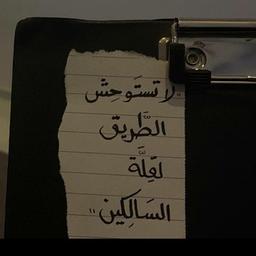 "لا تستَوحِش
الطَّريق
لقِلَّة
السَالِكين"